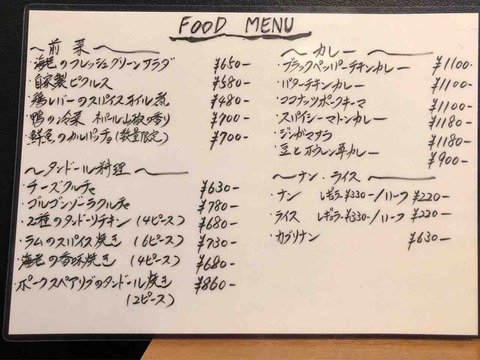 FOOD MENU
〜前菜〜
・海老のフレッシュグリーンサラダ ¥650-
・自家製ピクルス ¥580-
・鶏レバーのスパイスオイル煮 ¥480-
・鴨の冷菜 ネパール山椒の香り ¥700-
・鮮魚のカルパッチョ(数量限定) ¥700-
〜タンドール料理〜
・チーズクルチャ ¥630-
・ゴルゴンゾーラクルチャ ¥780-
・2種のタンドーリチキン (4ピース) ¥680-
・ラムのスパイス焼き (6ピース) ¥730-
・海老の香味焼き (4ピース) ¥680-
・ポークスペアリブのタンドール焼き ¥860-
(2ピース)
〜カレー〜
・ブラックペッパーチキンカレー ¥1100-
・バターチキンカレー ¥1100-
・ココナッツポークキーマ ¥1100-
・スパイシーマトンカレー ¥1180-
・ジンガマサラ ¥1180-
・豆とホウレン草カレー ¥900-
〜ナン・ライス〜
・ナン レギュラー¥330-/ハーフ ¥220-
・ライス レギュラー¥330-/ハーフ ¥220-
・カブリナン ¥630-